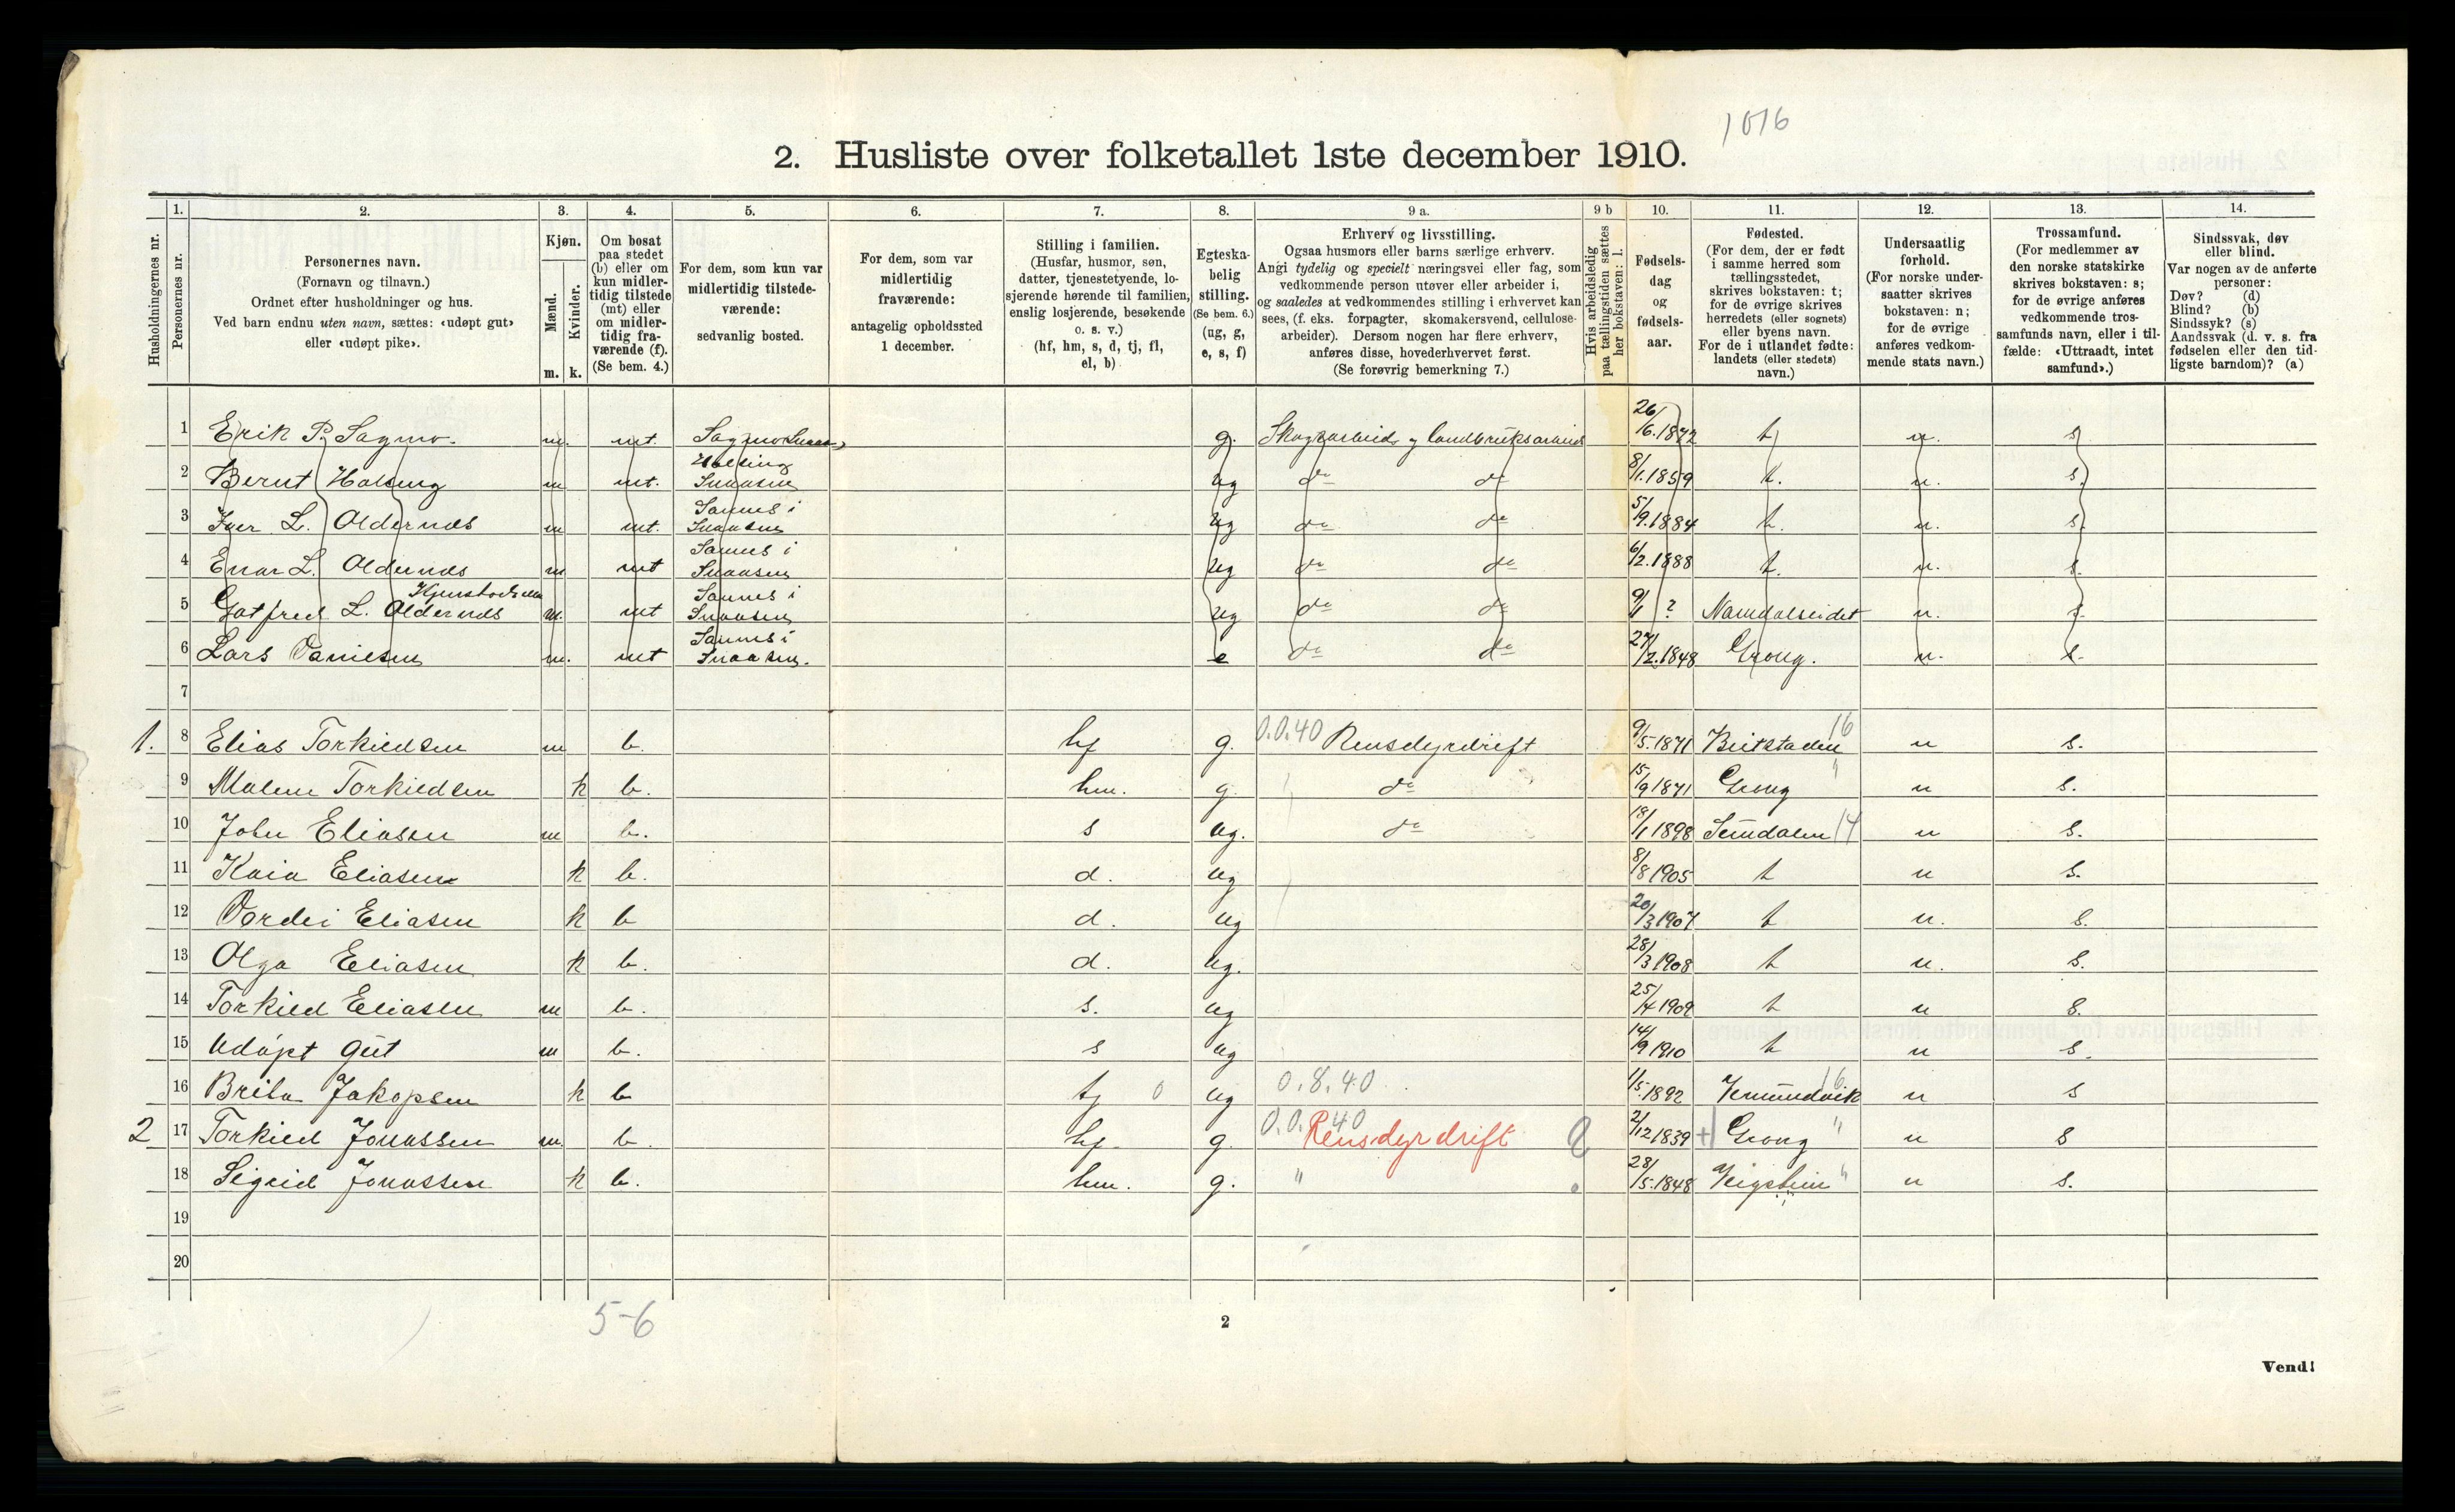 1016
2. Husliste over folketallet 1ste december 1910.
Husholdningernes nr.
1.
Personernes nr.
2.
Personernes navn.
(Fornavn og tilnavn.)
Ordnet efter husholdninger og hus.
Ved barn endnu uten navn, sættes: «udøpt gut»
eller «udøpt pike».
3.
Kjøn.
Mænd.
Kvinder.
m. k.
4.
Om bosat
paa stedet
(b) eller om
kun midler-
tidig tilstede
(mt) eller
om midler-
tidig fra-
værende (f).
(Se bem. 4.)
5.
For dem, som kun var
midlertidig tilstede-
værende:
sedvanlig bosted.
6.
For dem, som var
midlertidig
fraværende:
antagelig opholdssted
1 december.
7.
Stilling i familien.
(Husfar, husmor, søn,
datter, tjenestetyende, lo-
sjerende hørende til familien,
enslig losjerende, besøkende
o. s. v.)
(hf, hm, s, d, tj, fl,
el, b)
8.
Egteska-
belig
stilling.
(Se bem. 6.)
(ug, g,
e, s, f)
9 a.
Erhverv og livsstilling.
Ogsaa husmors eller barns særlige erhverv.
Angi tydelig og specielt næringsvei eller fag, som
vedkommende person utøver eller arbeider i,
og saaledes at vedkommendes stilling i erhvervet kan
sees, (f. eks. forpagter, skomakersvend, cellulose-
arbeider). Dersom nogen har flere erhverv,
anføres disse, hovederhvervet først.
(Se forøvrig bemerkning 7.)
9 b
Hvis arbeidsledig
paa tællingstiden sættes
her bokstaven: l.
10.
Fødsels-
dag
og
fødsels-
aar.
11.
Fødested.
(For dem, der er født
i samme herred som
tællingsstedet,
skrives bokstaven: t;
for de øvrige skrives
herredets (eller sognets)
eller byens navn.
For de i utlandet fødte:
landets (eller stedets)
navn.)
12.
Undersaatlig
forhold.
(For norske under-
saatter skrives
bokstaven: n;
for de øvrige
anføres vedkom-
mende stats navn.)
13.
Trossamfund.
(For medlemmer av
den norske statskirke
skrives bokstaven: s;
for de øvrige anføres
vedkommende tros-
samfunds navn, eller i til-
fælde: «Uttraadt, intet
samfund».)
14.
Sindssvak, døv
eller blind.
Var nogen av de anførte
personer:
Døv? (d)
Blind? (b)
Sindssyk? (s)
Aandssvak (d. v. s. fra
fødselen eller den tid-
ligste barndom)? (a)
1 Erik P. Sagmo. m. mt. Sagmo Snaasen g. Skogsarbeide og landbruksarbeid 26/6.1872 t n. s
2 Bernt Holsing m mt. Holsing Snaasen ug do do 8/1.1859 t. n. s.
3 Iver L. Oldernæs m mt. Sannes i Snaasen ug do do 5/9.1884 t. n. s.
4 Einar L. Oldernæs m mt Sannes i Snaasen ug do do 6/2.1888 t. n. s.
5 Gotfred L. Oldernæs m. mt Sannes i Snaasen ug do do 9/1 ? Namdalseidet n. s.
6 Lars Danielsen m. mt Sannes i Snaasen. e do do 27/2.1848 Grong. n. s.
7
1. 8 Elias Torkildsen m b. hf g. 0.0.40 Rensdyrdrift 9/5.1871 Beitstaden 16 n s.
9 Malene Torkildsen k b. hm. g. do 15/9 1871 Grong " n s.
10 John Eliasen m b. s ug. do 18/1 1898 14 n s.
11 Kaia Eliasen k b. d. ug 8/8 1905 t n s.
12 Dordei Eliasen k b d. ug 20/3 1907 t n. s.
13 Olga Eliasen k b. d. ug. 28/3 1908 t n. s.
14 Torkild Eliasen m b. s. ug 25/4 1909 t n s.
15 Udøpt gut m b. s ug 14/9 1910 t n s.
16 Brita Jakopsen k b tj 0 ug 0.8.40 1/5.1892 16 n s
2 17 Torkild Jonassen m. b. hf g. 0.0.40 Rensdyrdrift 2/12 1839 Grong " n s
18 Sigrid Jonassen k b. hm. g. " 28/5.1848 " n s.
19
20
5-6
2
Vend!